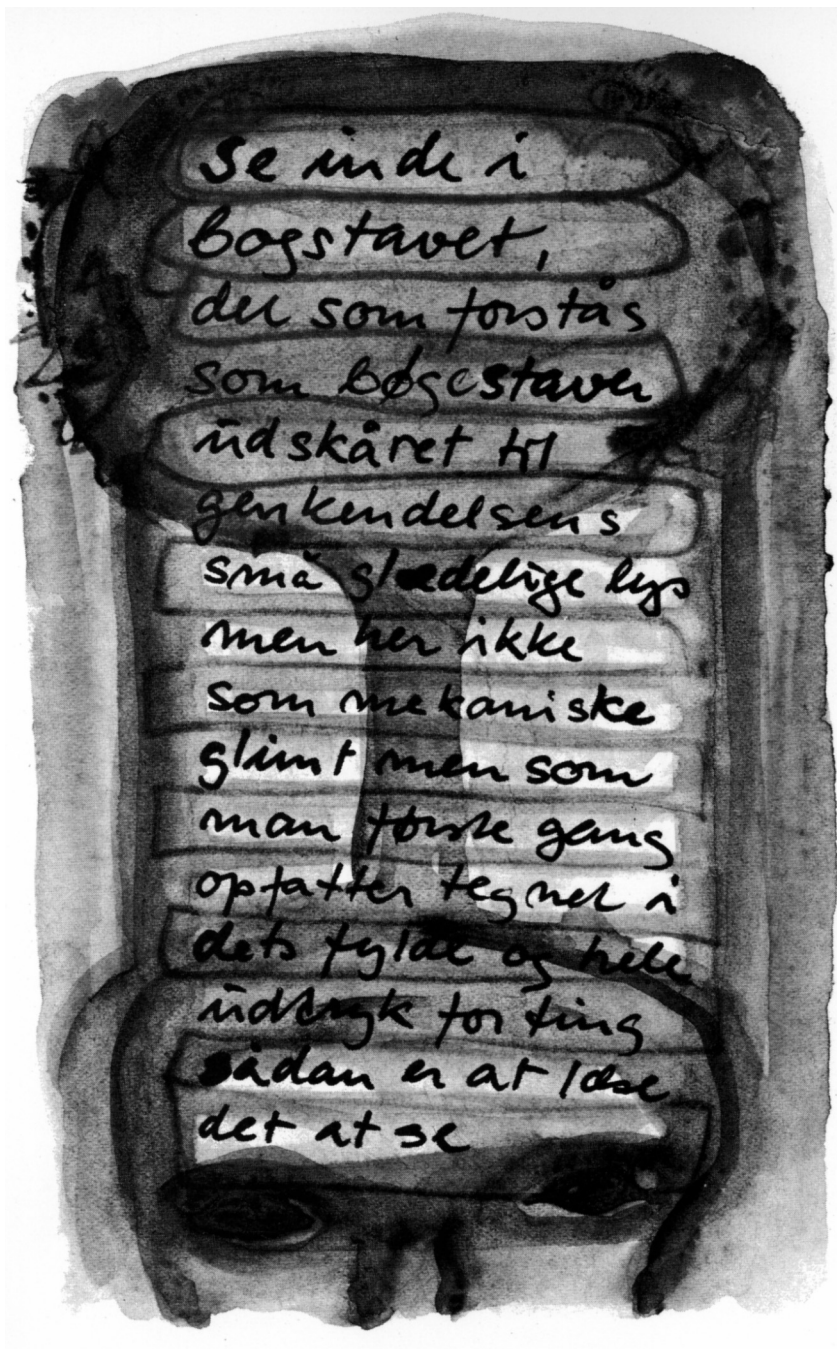 se inde i
bogstavet,
det som forstås
som bøgestaver
udskåret til
genkendelsens
små glædelige lys
men her ikke
som mekaniske
glimt men som
man første gang
opfatter tegnet i
dets fylde og hele
udtryk for ting
sådan er at læse
det at se